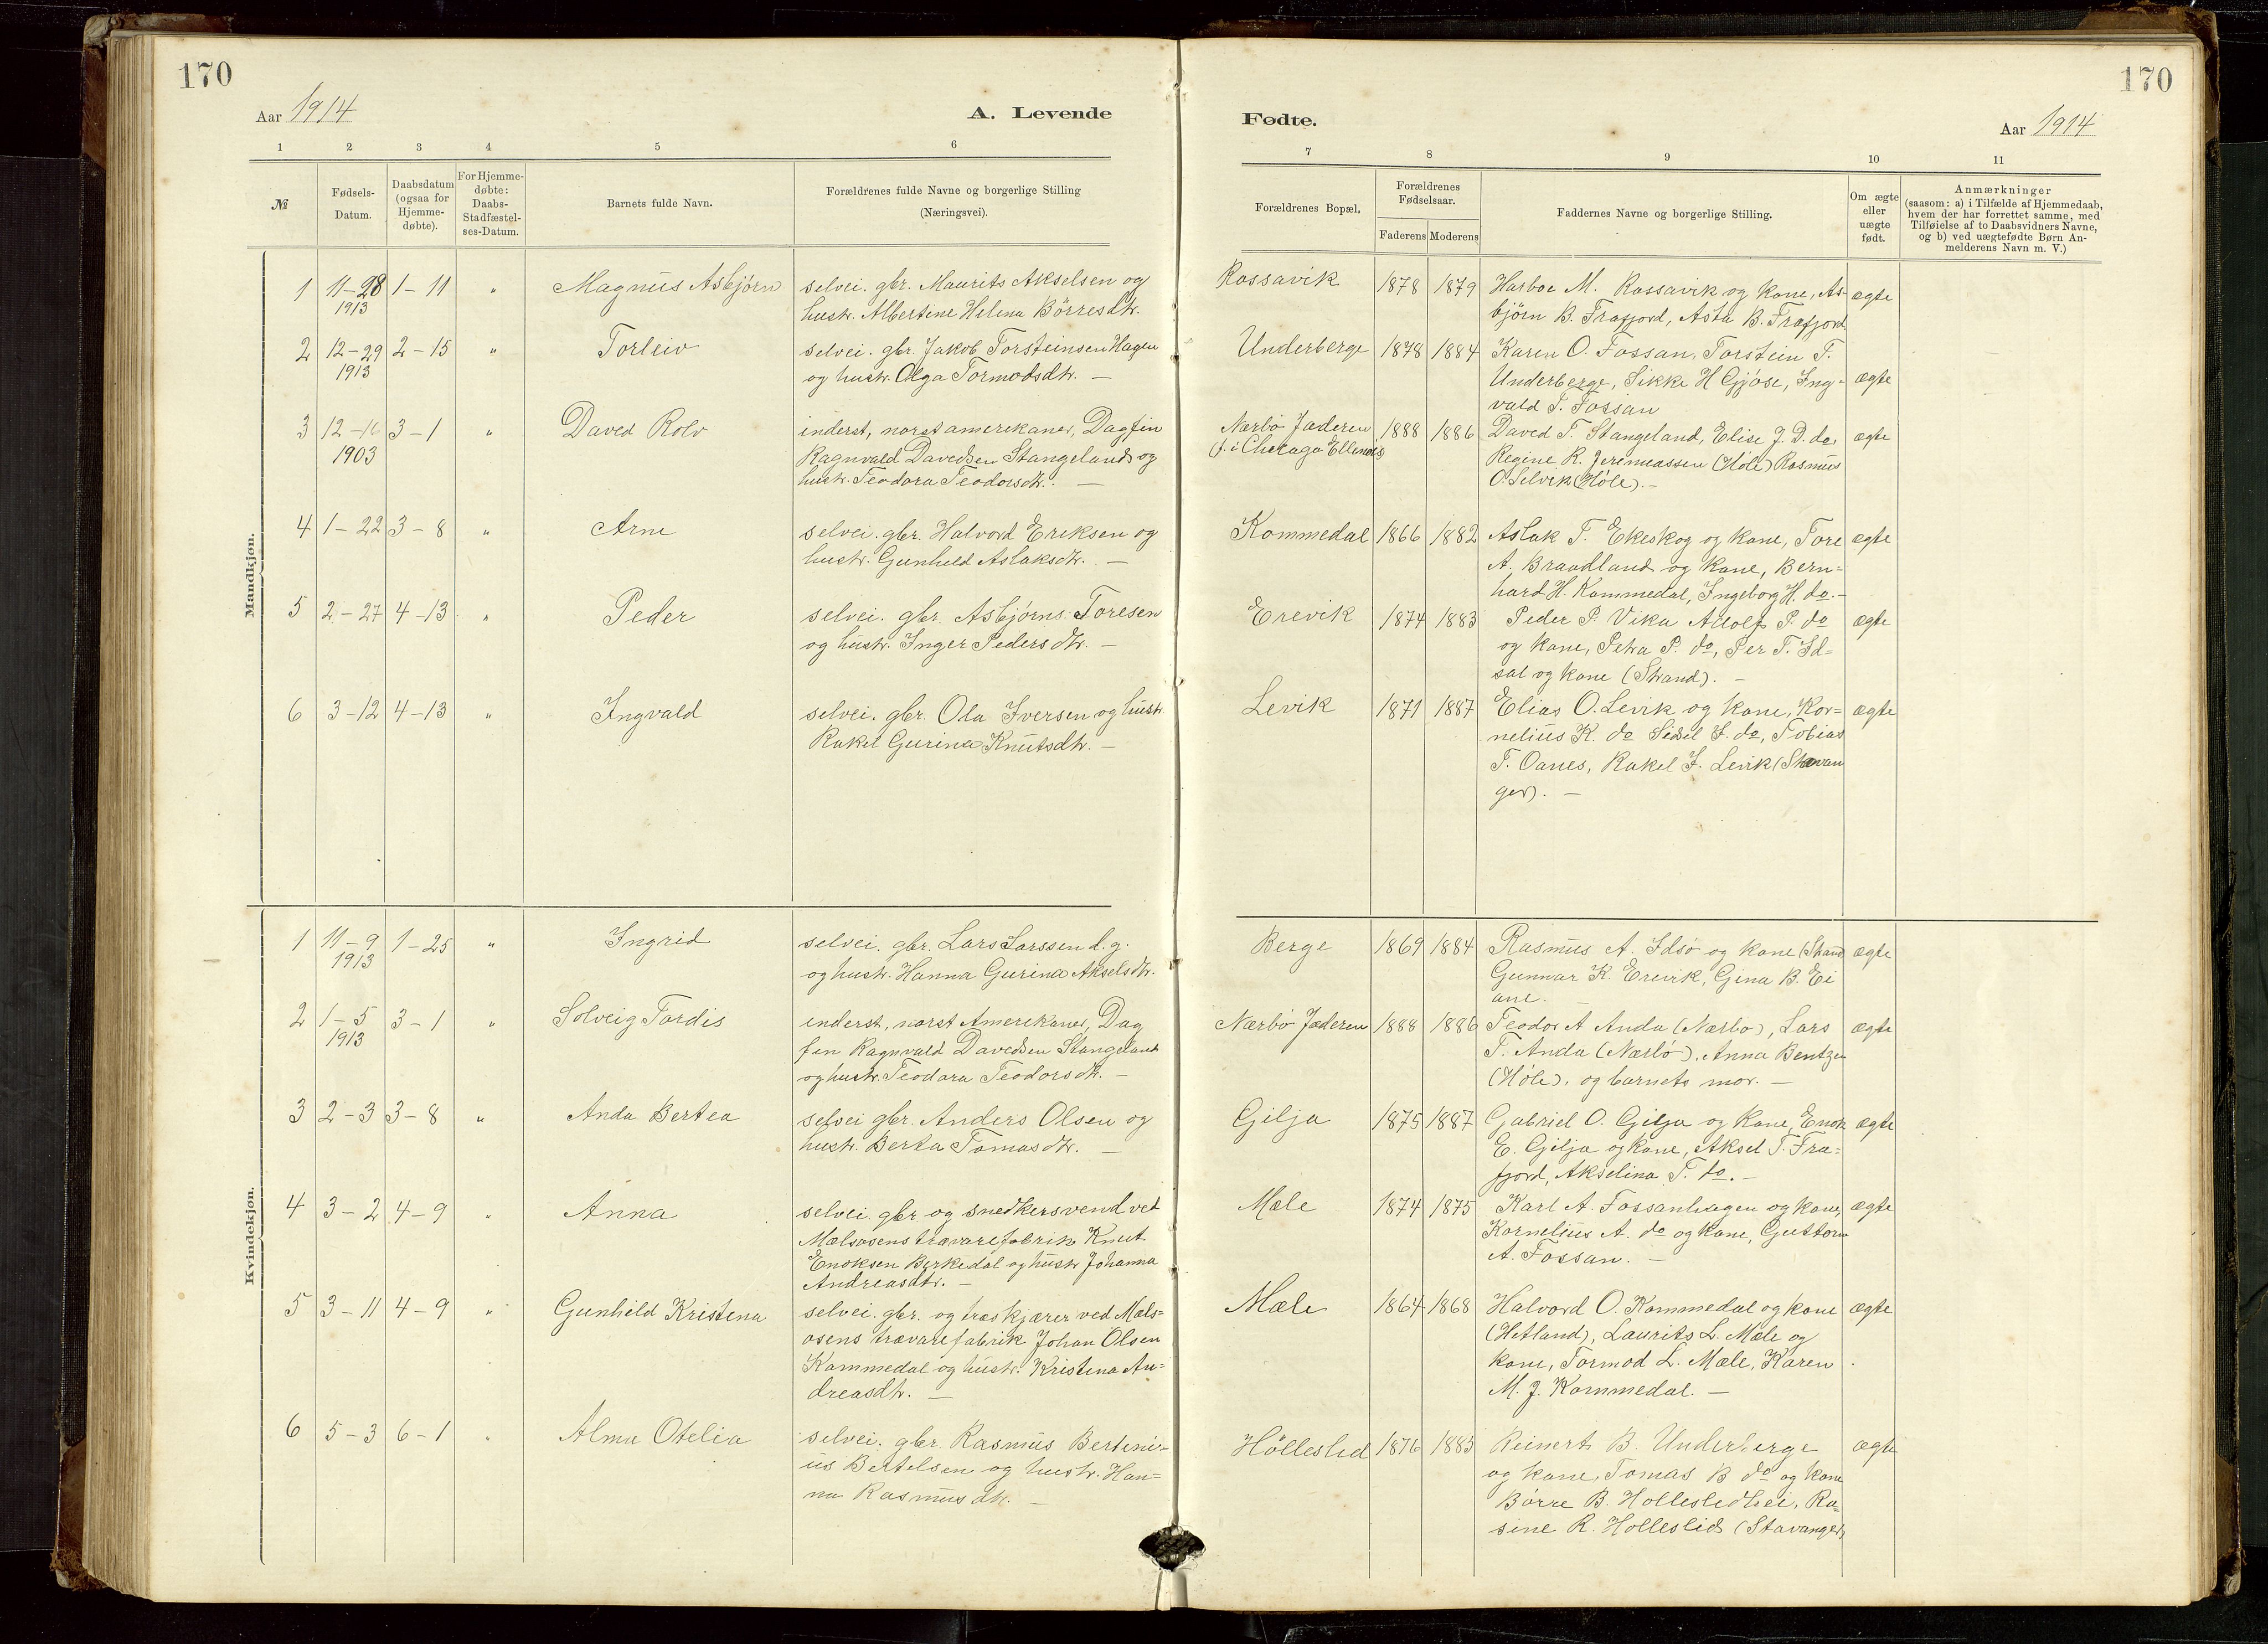 170
Aar 1914
A. Levende
1 2 3 4 5 6
№
Fødsels-
Datum.
Daabsdatum
(ogsaa for
Hjemme-
døbte).
For Hjemme-
døbte:
Daabs-
Stadfæstel-
ses-Datum.
Barnets fulde Navn.
Forældrenes fulde Navne og borgerlige Stilling
(Næringsvei).
Mandkjøn.
1 11-28 1-11 " Magnus Asbjørn selvei. gbr. Maurits Akselsen og
1913 hustr. Albertine Helena Börresdtr.
2 12-29 2-15 " Torleiv selvei. gbr. Jakob Torsteinsen Hagen
1913 og hustr. Olga Tormodsdtr. —
3 12-16 3-1 " Daved Rolv inderst, norst amerekaner, Dagfin
1903 Ragnvald Davedsen Stangeland og
hustr. Teodora Teodorsdtr. —
4 1-22 3-8 " Arne selvei. gbr. Halvord Ereksen og
hustr. Gunheld Aslaksdtr. —
5 2-27 4-13 " Peder selvei. gbr. Asbjørns Toresen
og hustr. Inger Pedersdtr. —
6 3-12 4-13 " Ingvald selvei. gbr. Ola Iversen og hustr.
Rakel Gurina Knutsdtr. —
Kvindekjøn.
1 11-9 1-25 " Ingrid selvei. gbr. Lars Larssen d.g.
1913 og hustr. Hanna Gurina Akselsdtr.
2 1-5 3-1 " Solveig Tordis enderst, norst Amerekaner, Dag
1913 fin Ragnvald Davedsen Stangeland
og hustr. Teodora Teodorsdtr. —
3 2-3 3-8 " Anda Bertea selvei gbr. Anders Olsen og
hustr. Berta Tomasdtr. —
4 3-2 4-9 " Anna selvei. gbr og snedkersvend ved
Mælsosens trævarefabrik Knut
Enoksen Birkedal og hustr Johanna
Andreasdtr. —
5 3-11 4-9 " Gunheld Kristena selvei. gbr. og træskjærer ved Mæls-
osens trævarefabrik Johan Olsen
Kommedal og hustr. Kristena An=
dreasdtr. —
6 5-3 6-1 " Alma Otelia selvei. gbr. Rasmus Berteni-
us Bertelsen og hustr. Han=
na Rasmusdtr. —
170
Fødte.
Aar 1914
7 8 9 10 11
Forældrenes Bopæl.
Forældrenes
Fødselsaar.
Faderens Moderens
Faddernes Navne og borgerlige Stilling.
Om ægte
eller
uægte
født.
Anmærkninger
(saasom: a) i Tilfælde af Hjemmedaab,
hvem der har forrettet samme, med
Tilføielse af to Daabsvidners Navne,
og b) ved uægtefødte Børn An-
melderens Navn m. V.)
Rossavik 1878 1879 Harboe M. Rossavik og kone, As- ægte
björn B. Frafjord, Asta B. Frafjord
Underberge 1878 1884 Karen O. Fossan, Torstein T.
Underberge, Sikke H Gjöse, Ing- ægte
vald T. Fossan
Nærbö Jæderen 1888 1886 Daved T. Stangeland, Elise J. D. do, ægte
(f. i Checago Ellenois) Regine R. Jeremeassen (Høle) Rasmus
O. Selvik (Høle). —
Kommedal 1866 1882 Aslak T. Ekeskog og kone, Tore ægte
A. Braadland og kone, Bern=
hard H. Kommedal, Ingeborg H. do. —
Erevik 1874 1883 Peder P. Vika Adolf P. do ægte
og kone, Petra P. do, Per T. Id=
sal og kone (Strand). —
Levik 1871 1887 Elias O. Levik og kone, Kor= ægte
nelius K. do Sidsel I. do, Tobias
T. Oanes, Rakel I. Levik (Stavan
ger). —
Berge 1869 1884 Rasmus A. Idsø og kone (Strand ægte
Gunnar K. Erevik, Gina B. Ei
ane.
Nærbö Jæderen 1888 1886 Teodor A Anda (Nærbö), Lars ægte
T. Anda (Nærbö). Anna Bentzen
(Høle), og barnets mor. —
Gilja 1875 1887 Gabriel O. Gilja og kone, Enok ægte
E. Gilja og kone, Aksel T. Fra=
fjord, Akselina T. do. —
Mæle 1874 1875 Karl A. Fossanhagen og kone, ægte
Kornelius A. do og kone, Guttorm
A. Fossan. —
Mæle 1864 1868 Halvord O. Kommedal og kone ægte
(Hetland), Laurits L. Mæle og
kone, Tormod L. Mæle, Karen
M. J. Kommedal. —
Hölleslid 1876 1885 Reinert B. Underberge ægte
og kone, Tomas B do og kone
Börre B. Holleslidhei, Ra=
sine R. Holleslid (Stavanger)